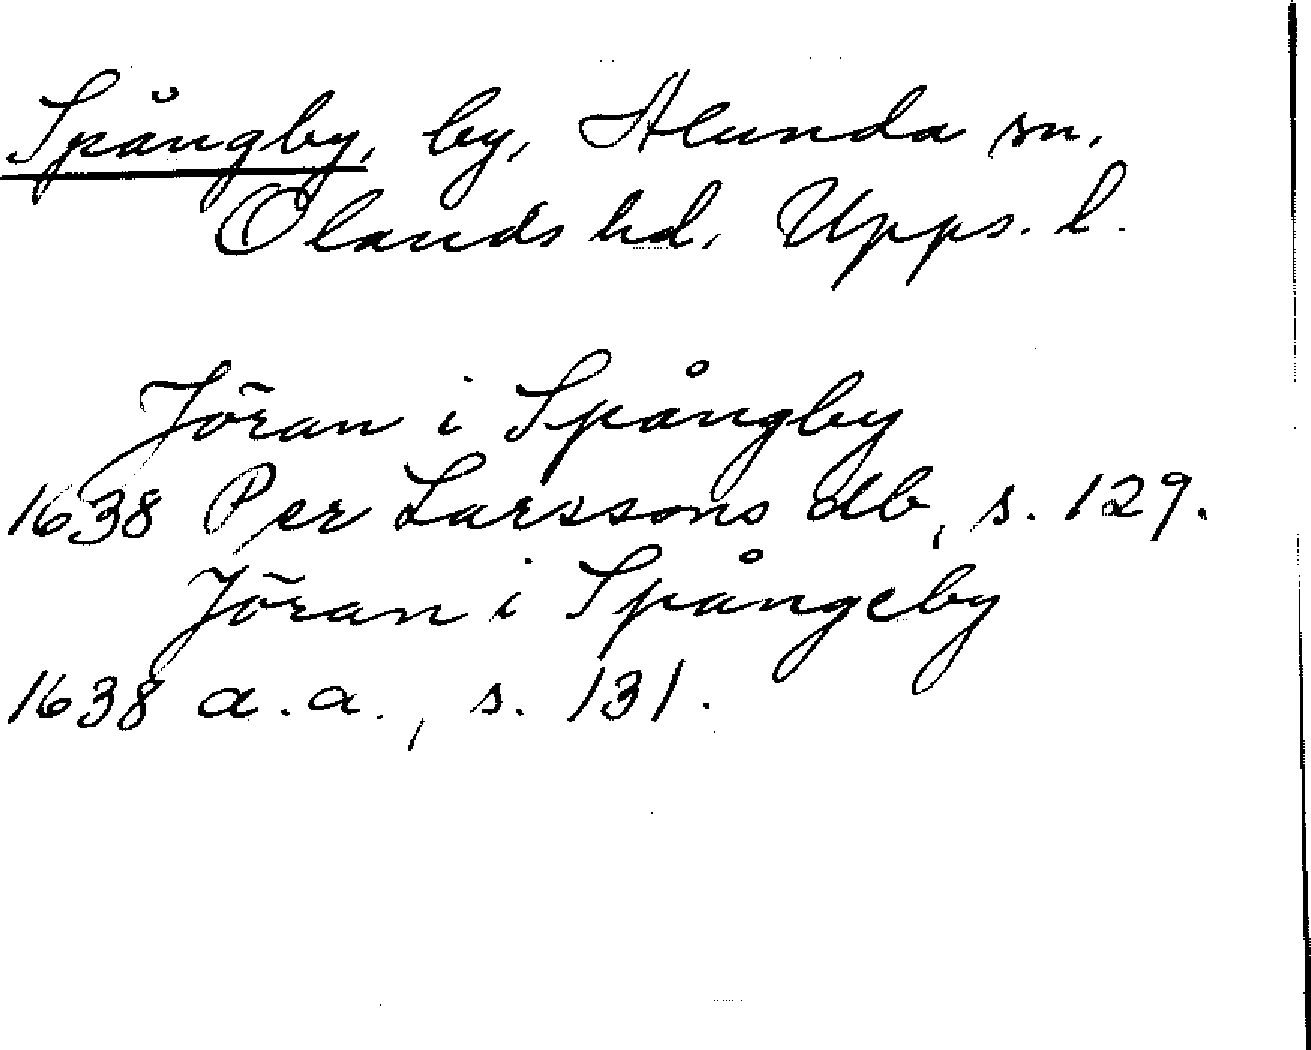 Spångby, by, Alunda sn.
Olands hd. Upps. l.
Jöran i Spångby
1638 Per Larssons db, s. 129.
Jöran i Spångeby
1638 a.a., s. 131.